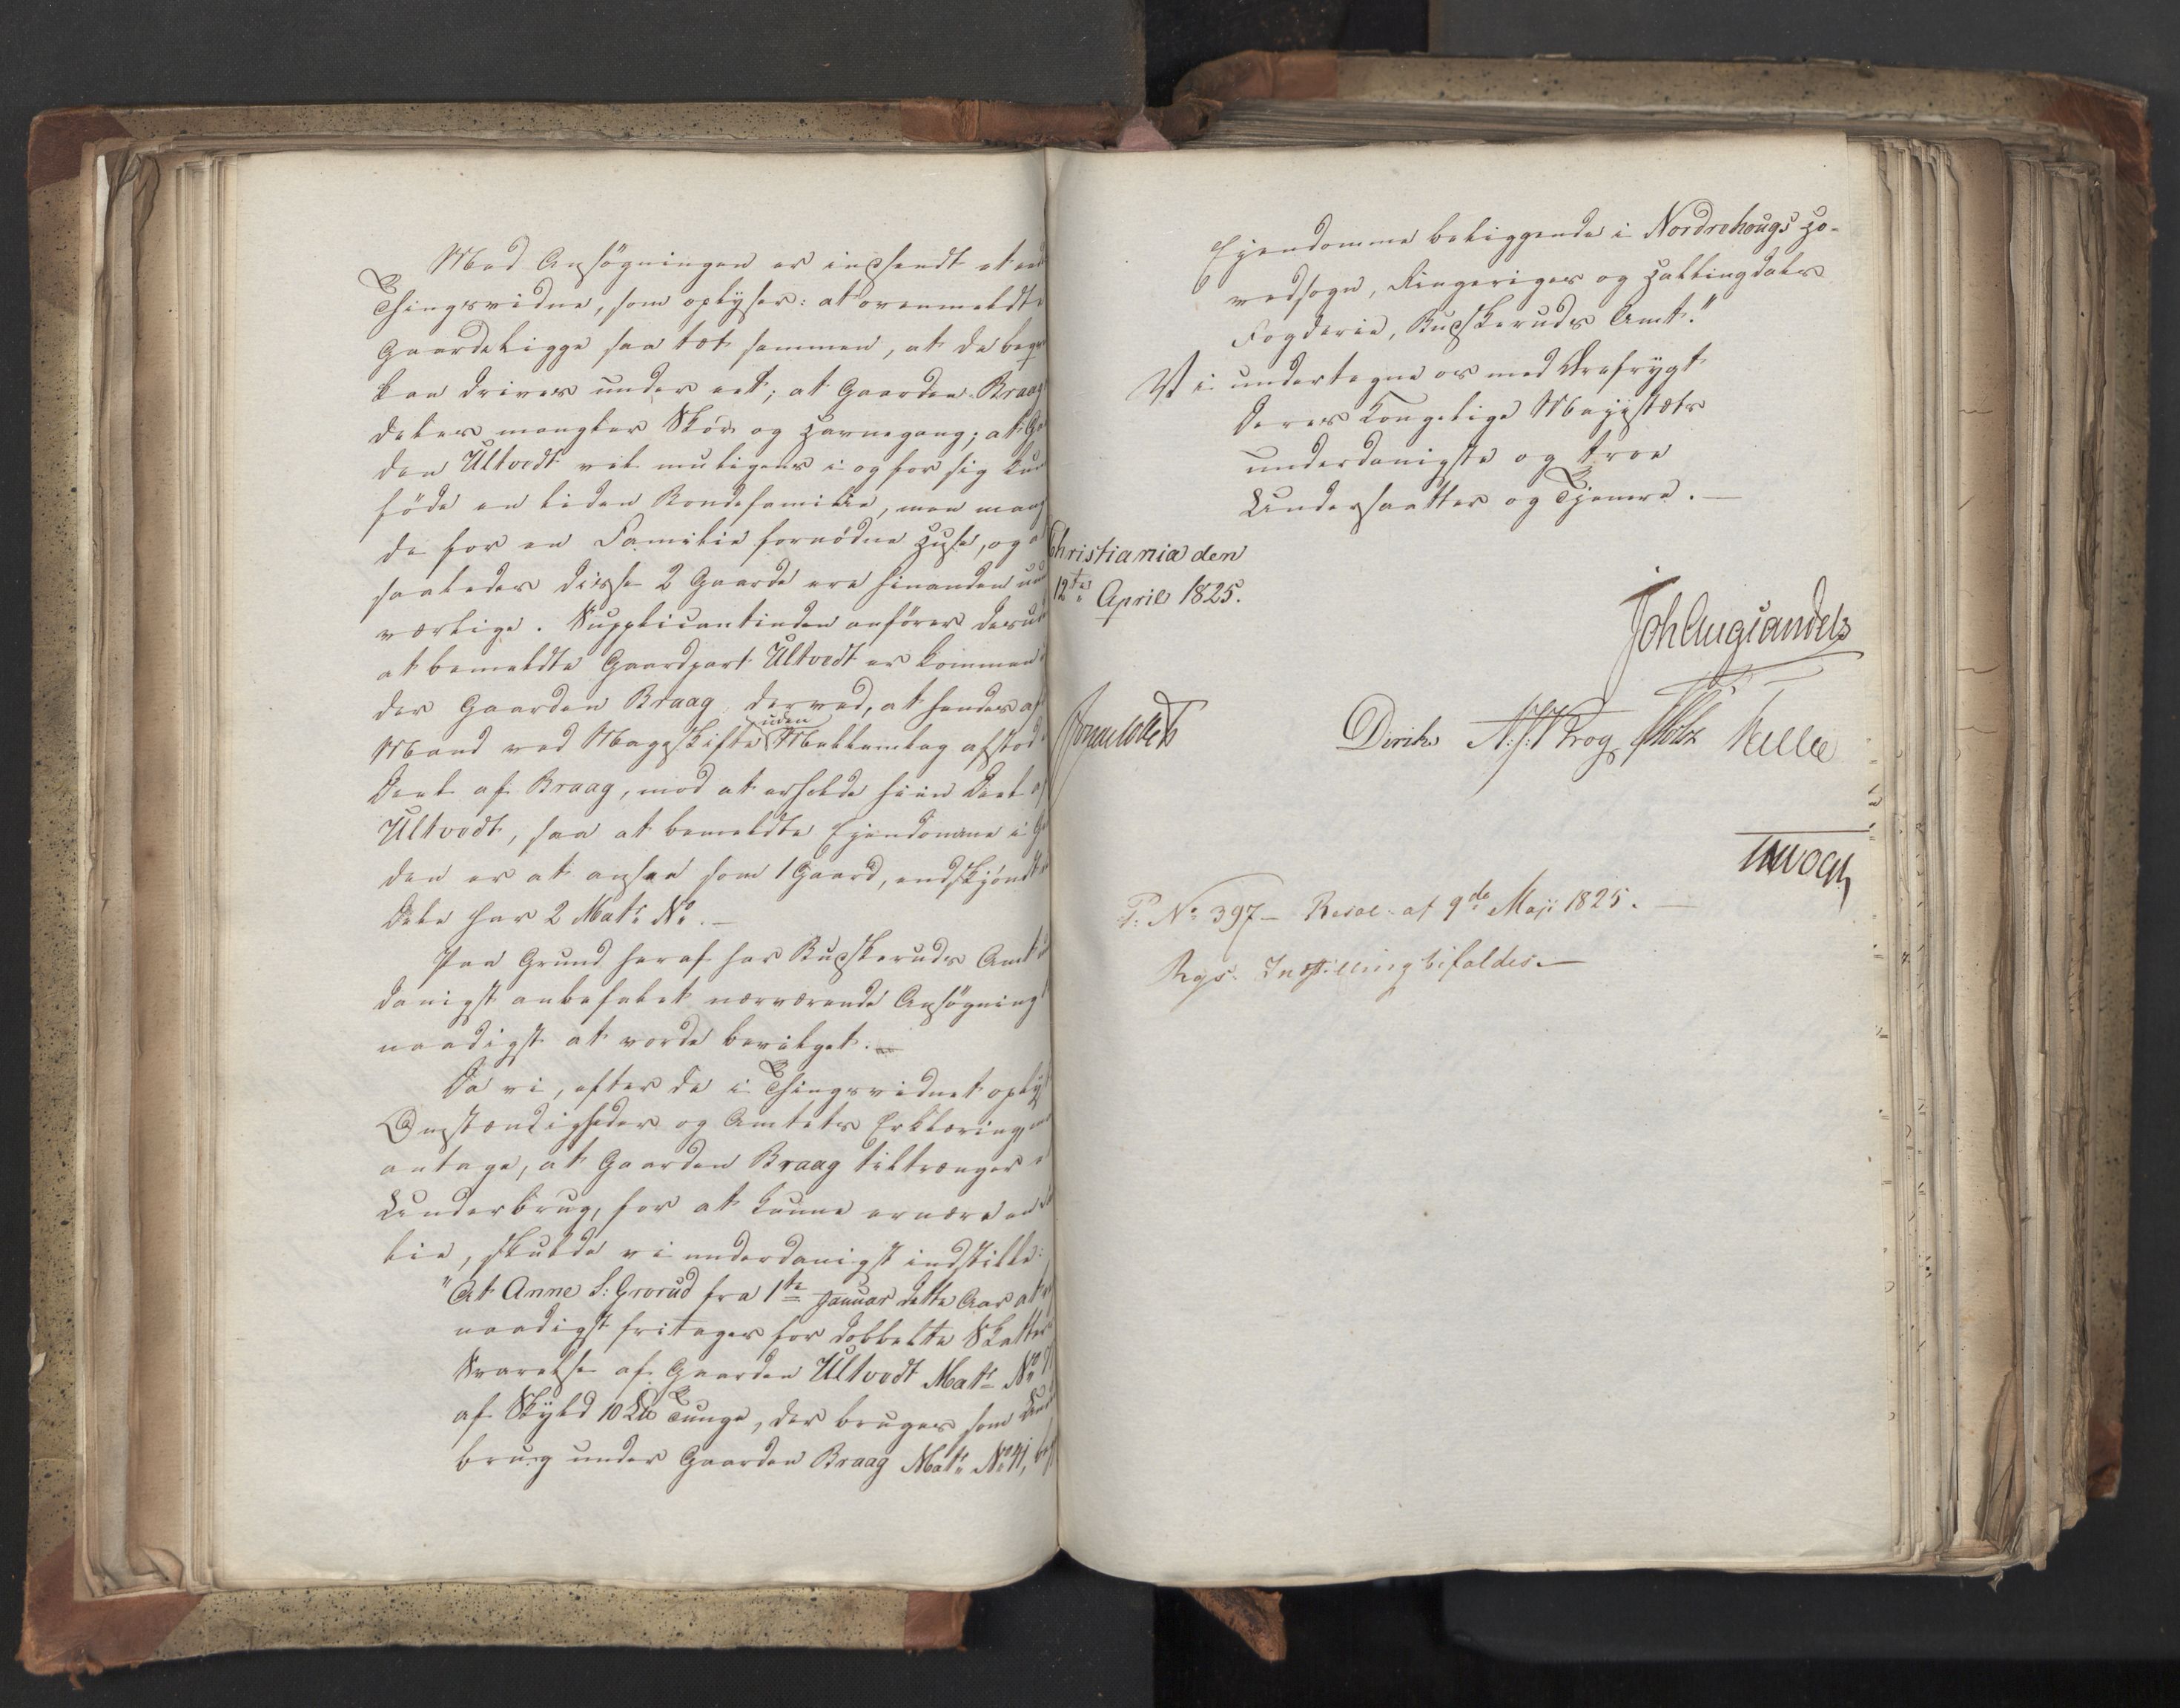 Med Ansøgningen er indsendt et
Thingsvidne, som oplyser: at ovenmeldte
Gaarde ligge saa tæt sammen, at de
kan drives under eet; at Gaarden Braag
deles mangler Skov og Havnegang; at
den Ultvedt vel muligens i og for sig
føde en liden Bondefamilie, men
de for en Familie fornødne Huse, og
saaledes disse 2 Gaarde ere hinanden
værlige. Supplicantinden anfører
at bemeldte Gaardpart Ultvedt er kommen
der Gaarden Braag derved, at hendes
Mand ved Mageskifte uden Mellemlag afstod
Deel af Braag, mod at erholde hiin Deel
Ultvedt, saa at bemeldte Ejendomme i
den er at ansee som 1 Gaard, endskjøndt
dele har 2 Matr. No. –
Paa Grund heraf har Buskeruds Amt
danigst anbefalet nærværende Ansøgning
naadigst at vorde bevilget. –
Da vi, efter de i Thingsvidnet
Omstændigheder og Amtets Erklæring,
antage, at Gaarden Braag tiltrænger
Underbrug, for at kunne ernære en
lie, skulde vi underdanigst indstille:
"At Anne S: Grorud fra 1te Januar dette Aar
naadigst fritages for dobbelte Skatters
Svarelse af Gaarden Ultvedt Matr. No
af Skyld 10 Tunge, der bruges som
brug under Gaarden Braag Matr. No 41,
Ejendomme beliggende i Nordrehougs Ho-
vedsogn, Ringeriges og Hallingdals
Fogderie, Buskeruds Amt."
Vi undertegne os med Ærefrygt
Deres Kongelige Majestæts
underdanigste og troe
Undersaatter og Tjenere. –
Christiania den
12te April 1825.
Joh Aug Sandels
Sommerfeldt Diriks Krog Holst Treschow
P: No 397 – Resol. af 9de Maji 1825. –
Rgs. Indstilling bifaldes. –